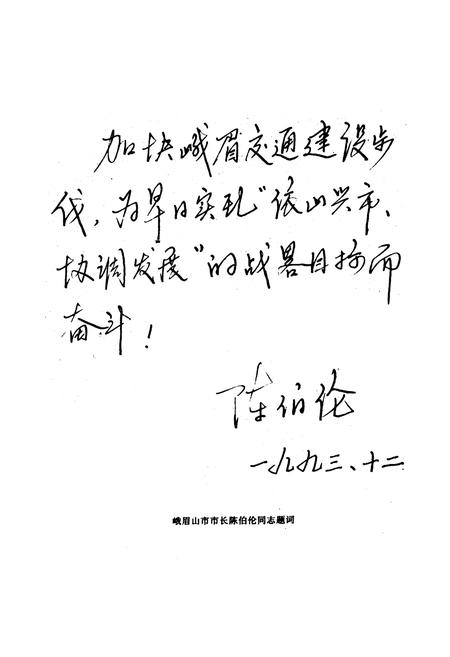 加快峨眉交通建设步
伐，为早日实现“依山兴市、
协调发展”的战略目标而
奋斗！
陈伯伦
一九九三、十二
峨眉山市市长陈伯伦同志题词